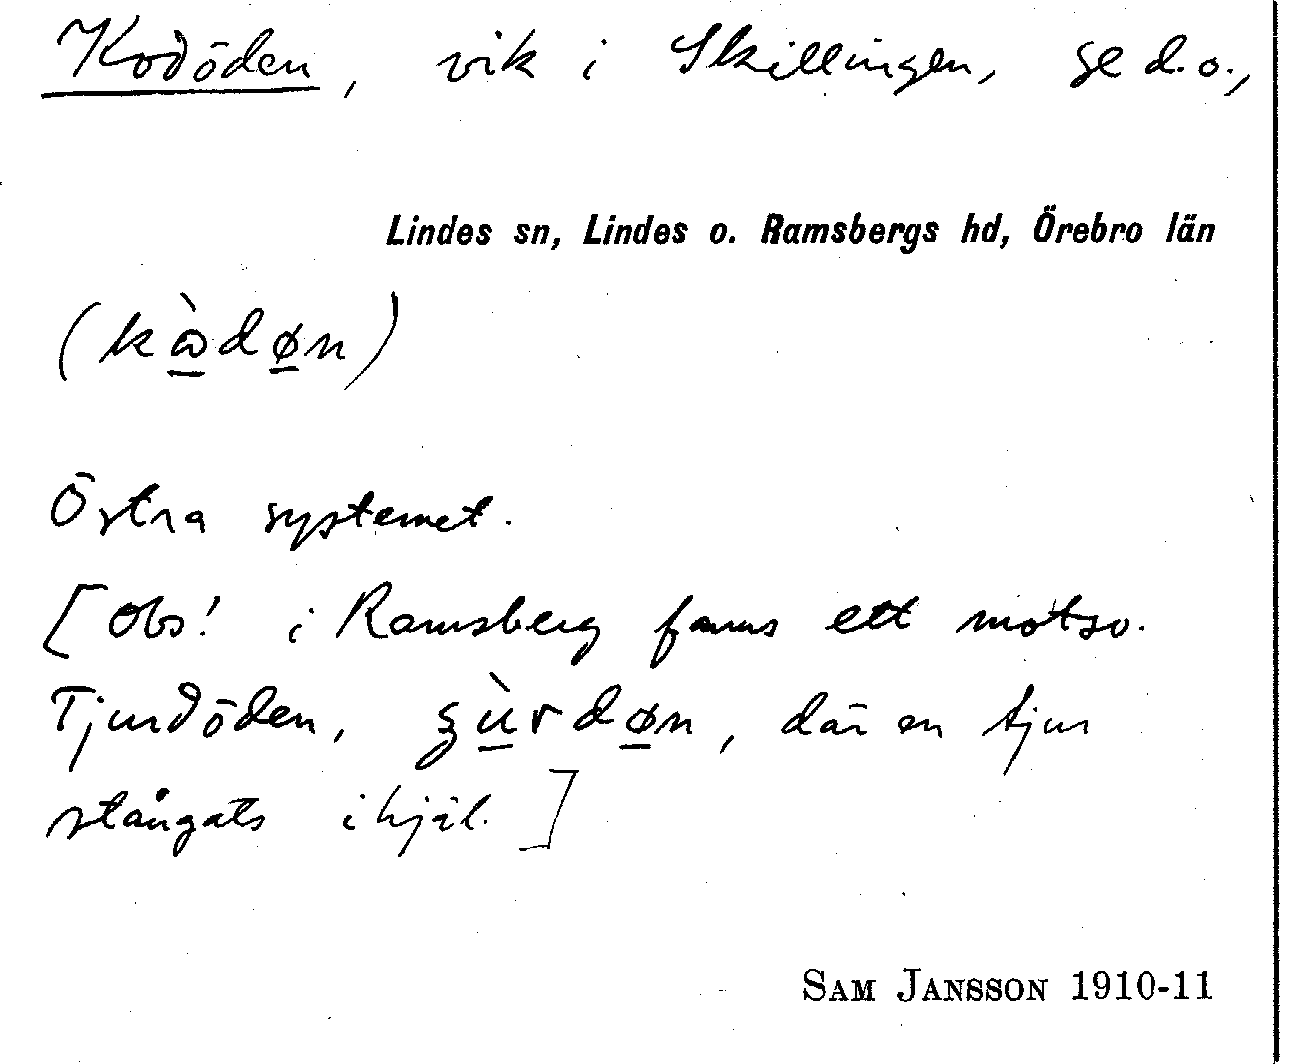 Kodöden, vik i Skillingen, se d.o.,
Lindes sn, Lindes o. Ramsbergs hd, Örebro län
(kὼdøn)
Östra systemet.
[Obs! i Ramsberg fanns ett motsv.
Tjurdöden, ʂùrdøn, där en tjur
stångats ihjäl.]
SAM JANSSON 1910-11